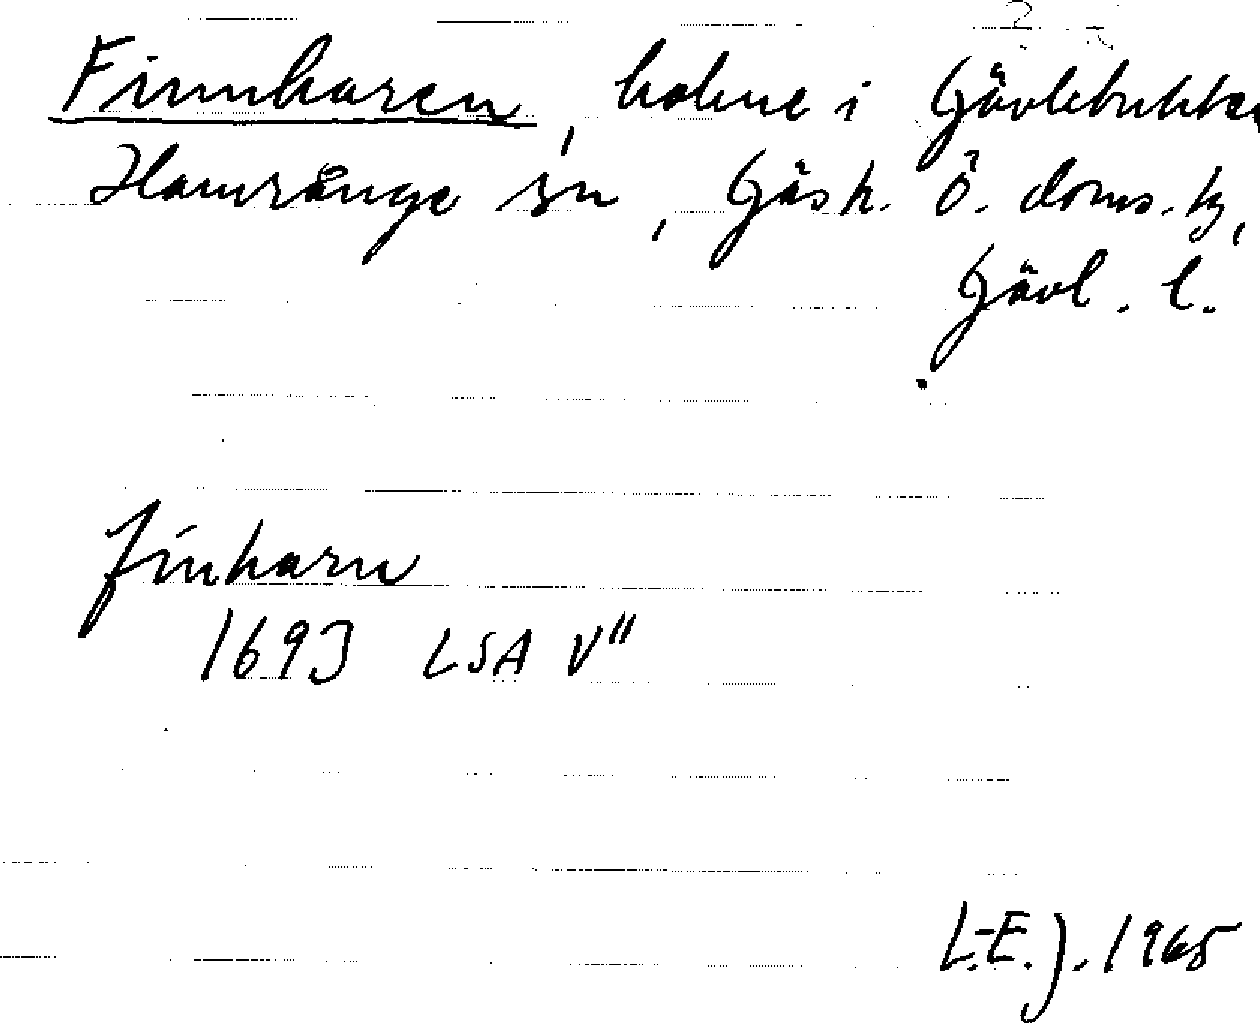 Finnharen, holme i Gävlebukten
Hamrånge sn, Gästr. Ö. doms.tg,
Gävl. l.
finharn
1693 LSA V"
L.-E.J. 1965